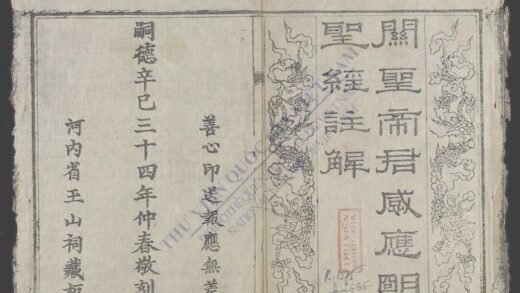 關聖帝君感應明
聖經註解
善心印送報應無差
嗣德辛巳三十四年仲春敬刻
河內省玉山祠藏板
THƯ VIỆN QUỐC